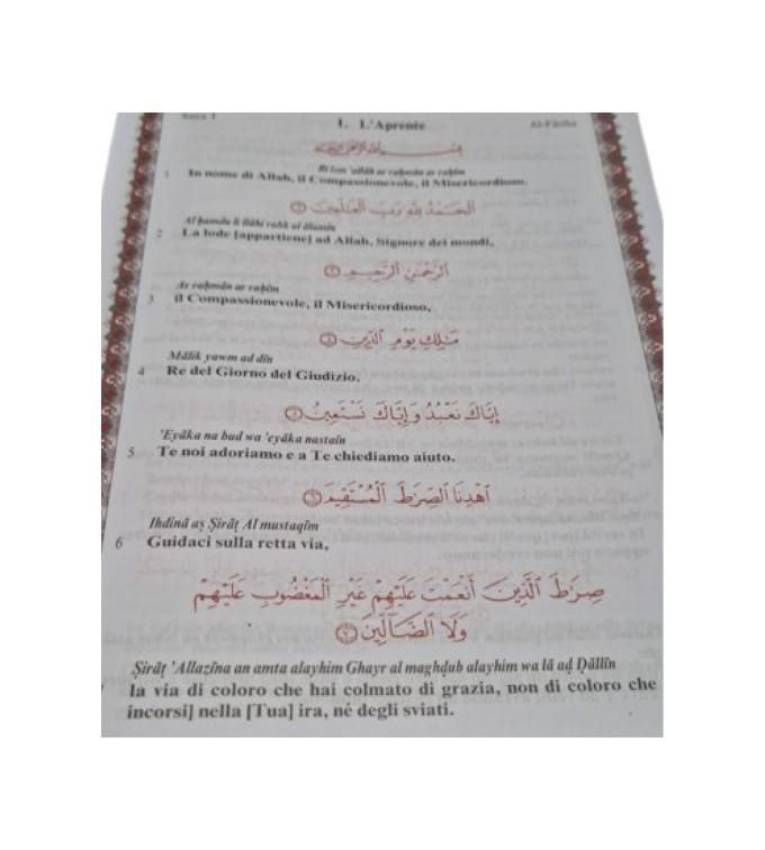 Sura 1 1. L'Aprente Al-Fātiha
In nome di Allah, il Compassionevole, il Misericordioso.
الحمد لله رب العلمين ١
Al hamdu li llāhi rabb al ālamīn
2 La lode [appartiene] ad Allah, Signore dei mondi,
الرحمن الرحيم ٢
Ar raḥmān ar raḥīm
3 il Compassionevole, il Misericordioso,
ملك يوم الدين ٣
Mālik yawm ad dīn
4 Re del Giorno del Giudizio.
إياك نعبد وإياك نستعين
'Eyāka na bud wa 'eyāka nastaīn
5 Te noi adoriamo e a Te chiediamo aiuto.
اهدنا الصرط المستقيم
Ihdinā aṣ Ṣirāṭ Al mustaqīm
6 Guidaci sulla retta via,
صرط الذين أنعمت عليهم غير المغضوب عليهم
ولا الضالين
Ṣirāṭ 'Allazīna an amta alayhim Ghayr al maghḍub alayhim wa lā aḍ Ḍāllīn
la via di coloro che hai colmato di grazia, non di coloro che
incorsi] nella [Tua] ira, né degli sviati.